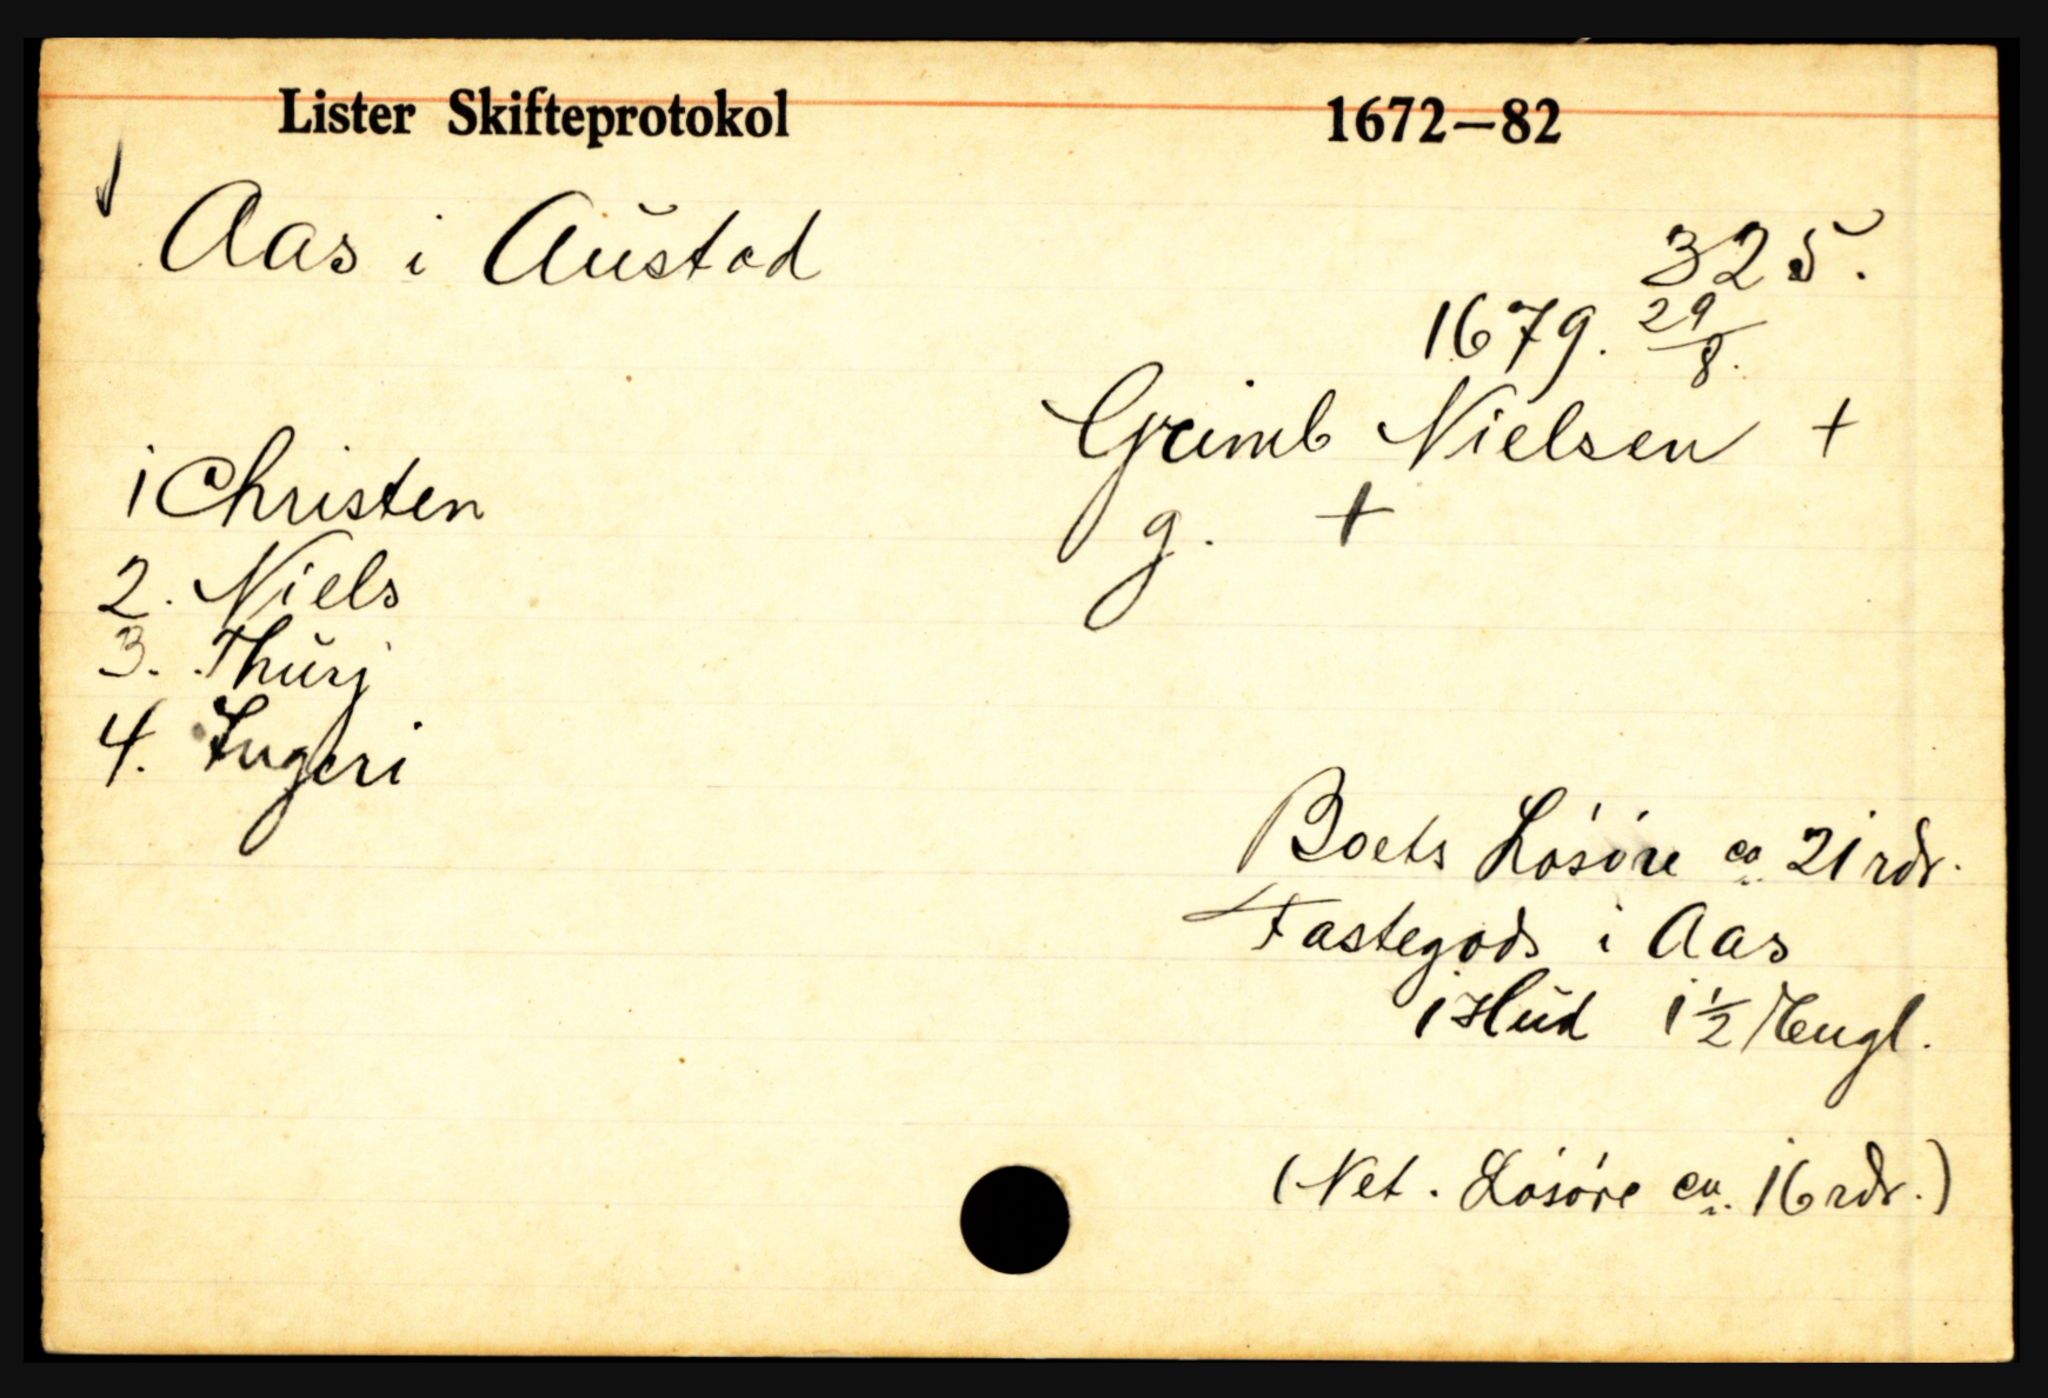 Lister Skifteprotokol 1672–82
Aas i Austad
325.
1679. 29/8.
Grimb Nielsen +
g. +
1 Christen
2. Niels
3. Thurj
4. Ingeri
Boets Løsøre ca. 21 rdr.
Fastegods i Aas
1 Hud 1 1/2 Engl.
(Net. Løsøre ca. 16 rdr.)